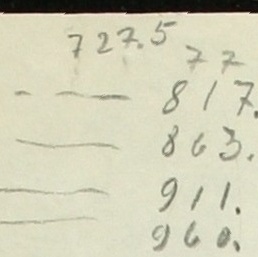 727.5
77
- — 817.
— 863.
— 911.
— 960.